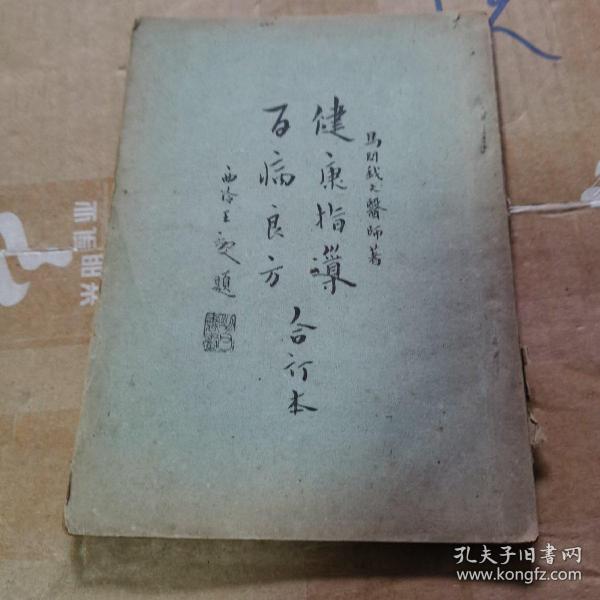 馬問我大醫師著
健康指導
百病良方
合訂本
西泠王題
孔夫子旧书网
www.kongfz.com